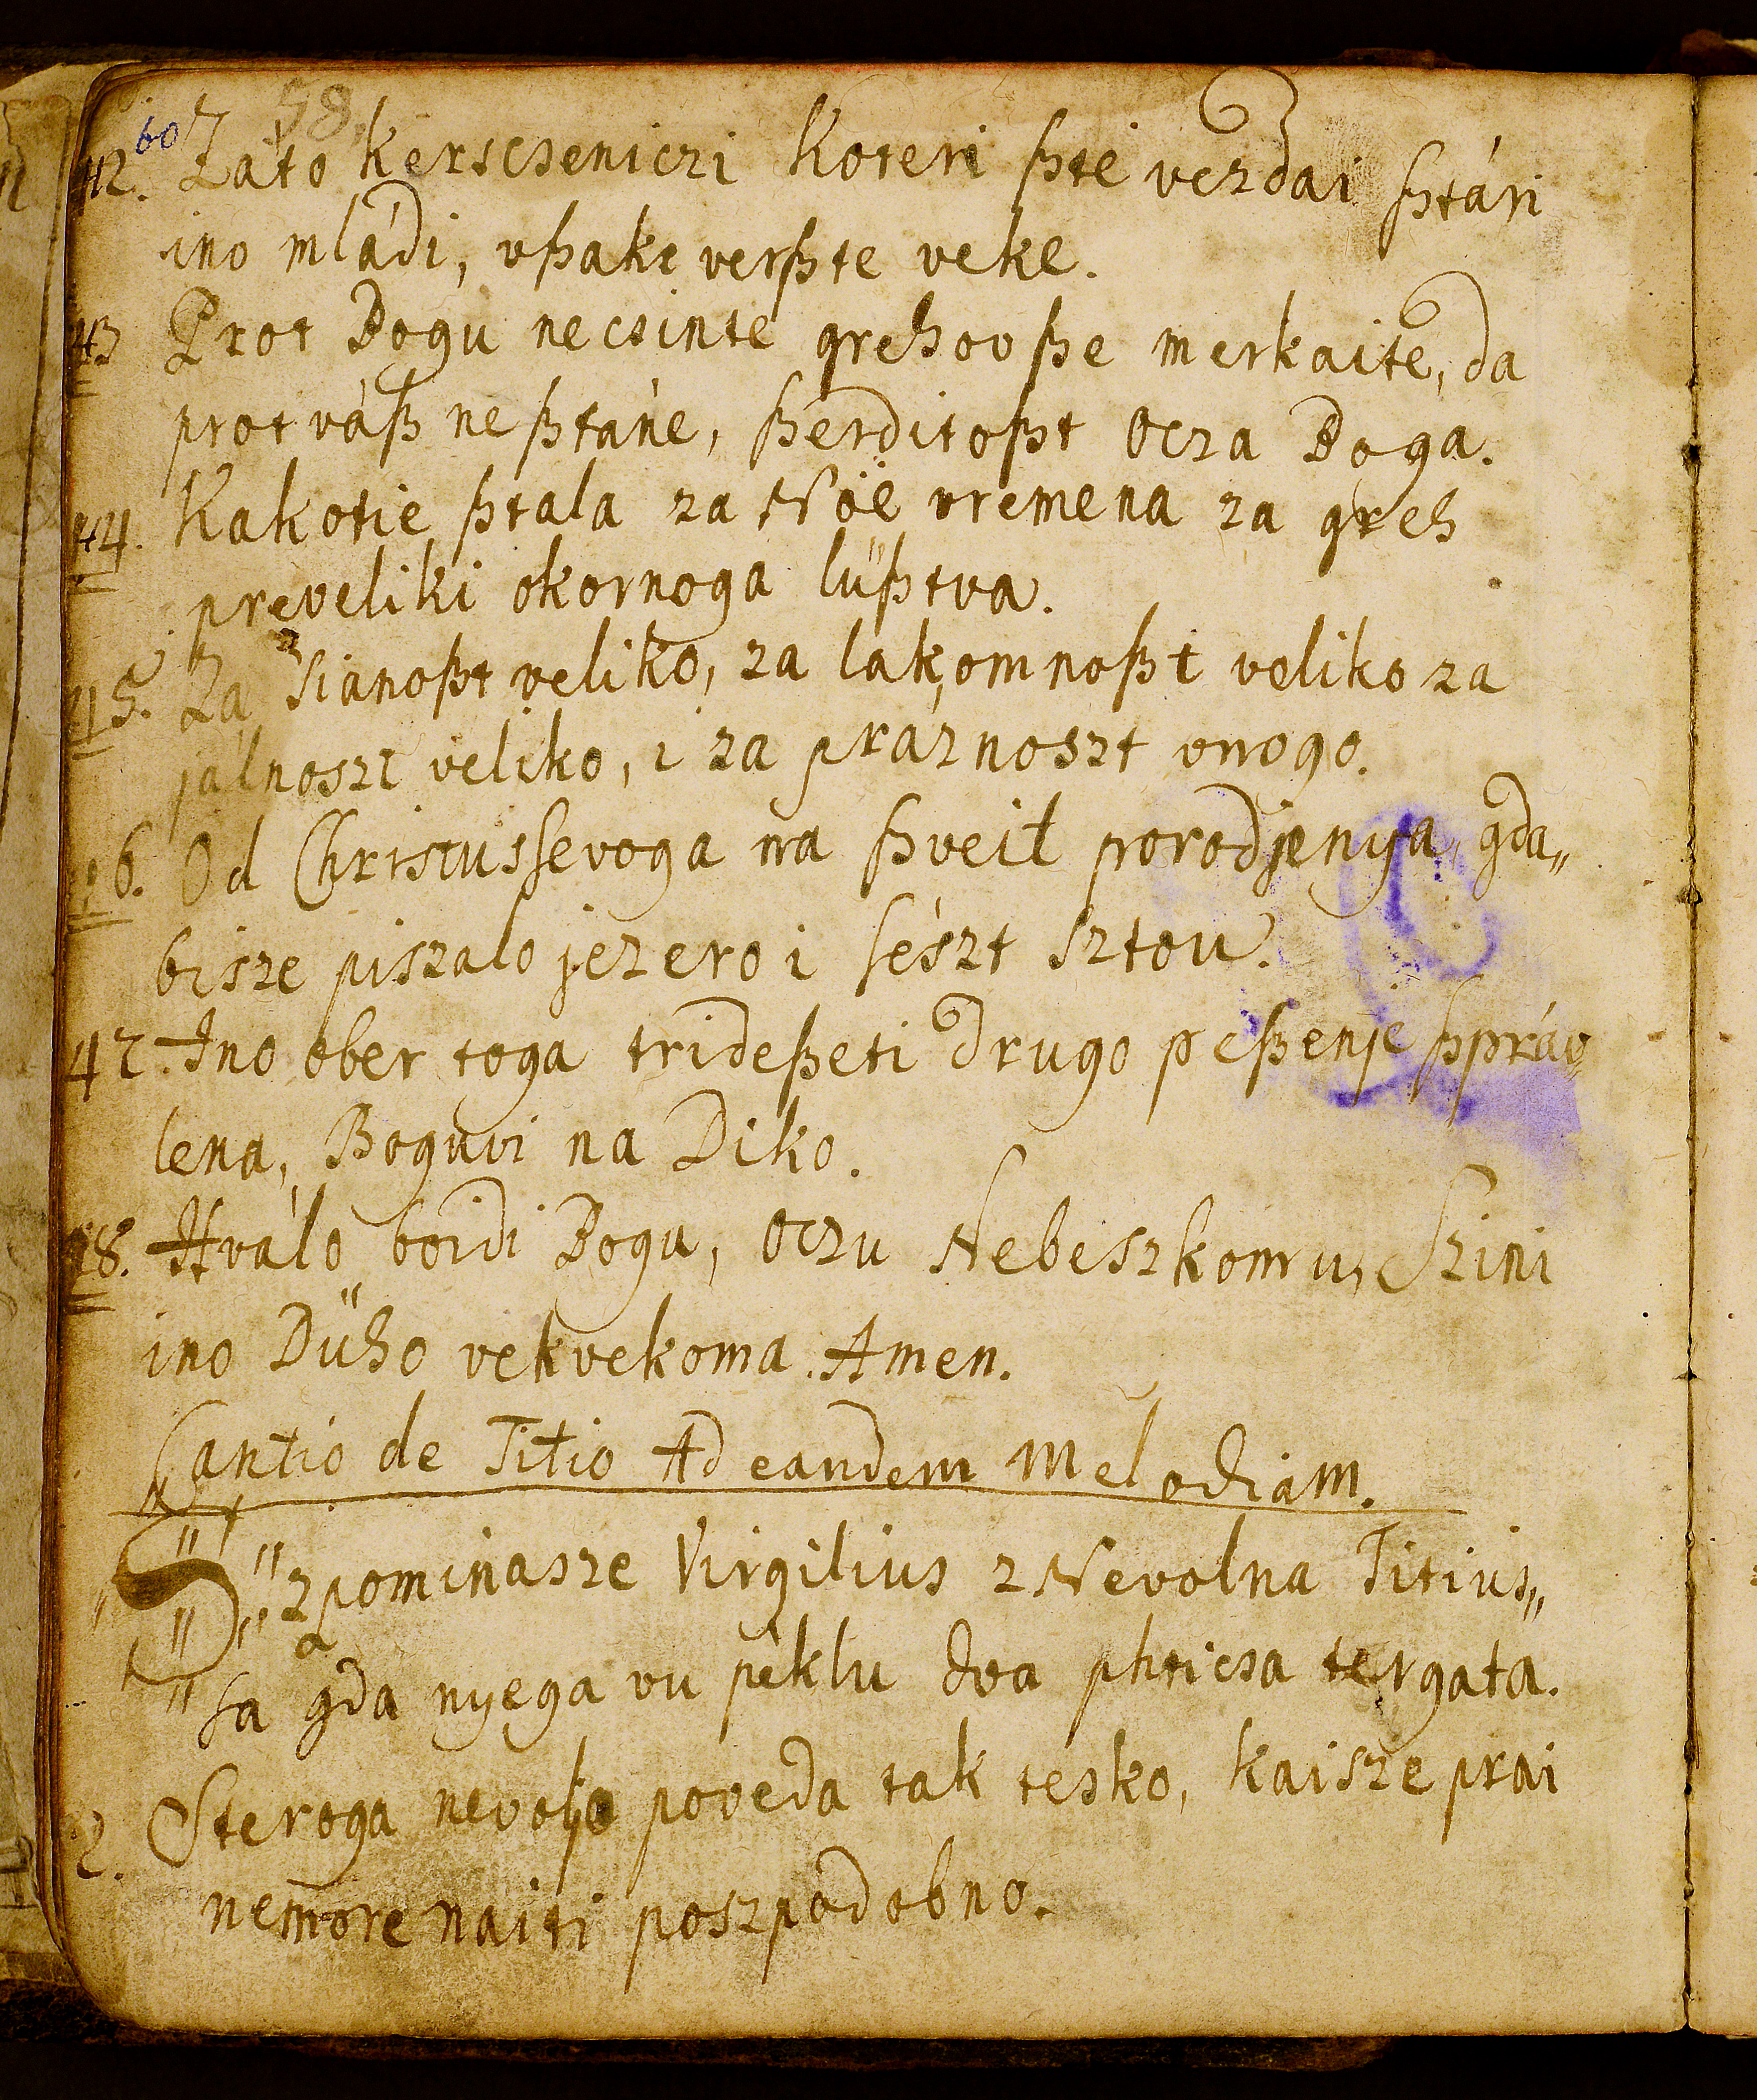 60 58.
42. Zato kerscseniczi koteri ßte vezdai ßtári
ino mládi, vßake verßte veke.
43 Prot Bogu necsinte grehov ße merkaite, da
prot váß ne ßtáne, ßerditoßt Ocza Boga.
44. Kakotie ßtala za Nöe vremena za greh
preveliki okornoga lüßtva.
45. Za Sianoßt veliko, za lakomnoßt veliko za
jálnoszt veliko, i za práznoszt vnogo.
46. Od Christussevoga na ßveit porodjenya, gda„
bisze piszalo jezero i sészt sztou.
47. Ino ober toga trideßeti drugo peßenje ßpráv„
lena, Boguvi na Diko.
48. Hválo boidi Bogu, Oczu Nebeszkomu, Szini
ino Düho vekvekoma. Amen.
Cantio de Titio Ad eandem Melodiam.
Szpominasze Virgilius z Nevolna Titius„
sa gda nyega vu péklu dva phticsa tergata.
2. Steroga nevoljo poveda tak tesko, kaisze prai
nemore naiti poszpodobno.